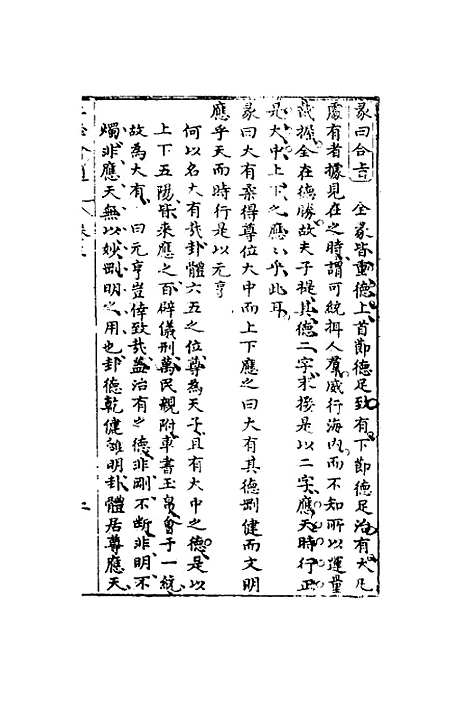 彖曰合旨　全彖皆重德上首節德足致有下節德足治有大凡
處有者據見在之時謂可統揖人羣威行海內而不知所以運量
是大中上下之應應乎此耳
彖曰大有柔得尊位大中而上下應之曰大有其德剛健而文明
應乎天而時行是以元亨
何以名大有哉卦體六五之位尊為天子且有大中之德是以
上下五陽皆來應之百辟儀刑萬民親附車書玉帛會于一統
故為大有曰元亨豈倖致哉蓋治有之德非剛不斷非明不
燭非應天無以妙剛明之用也卦德乾健離明卦體居尊應天